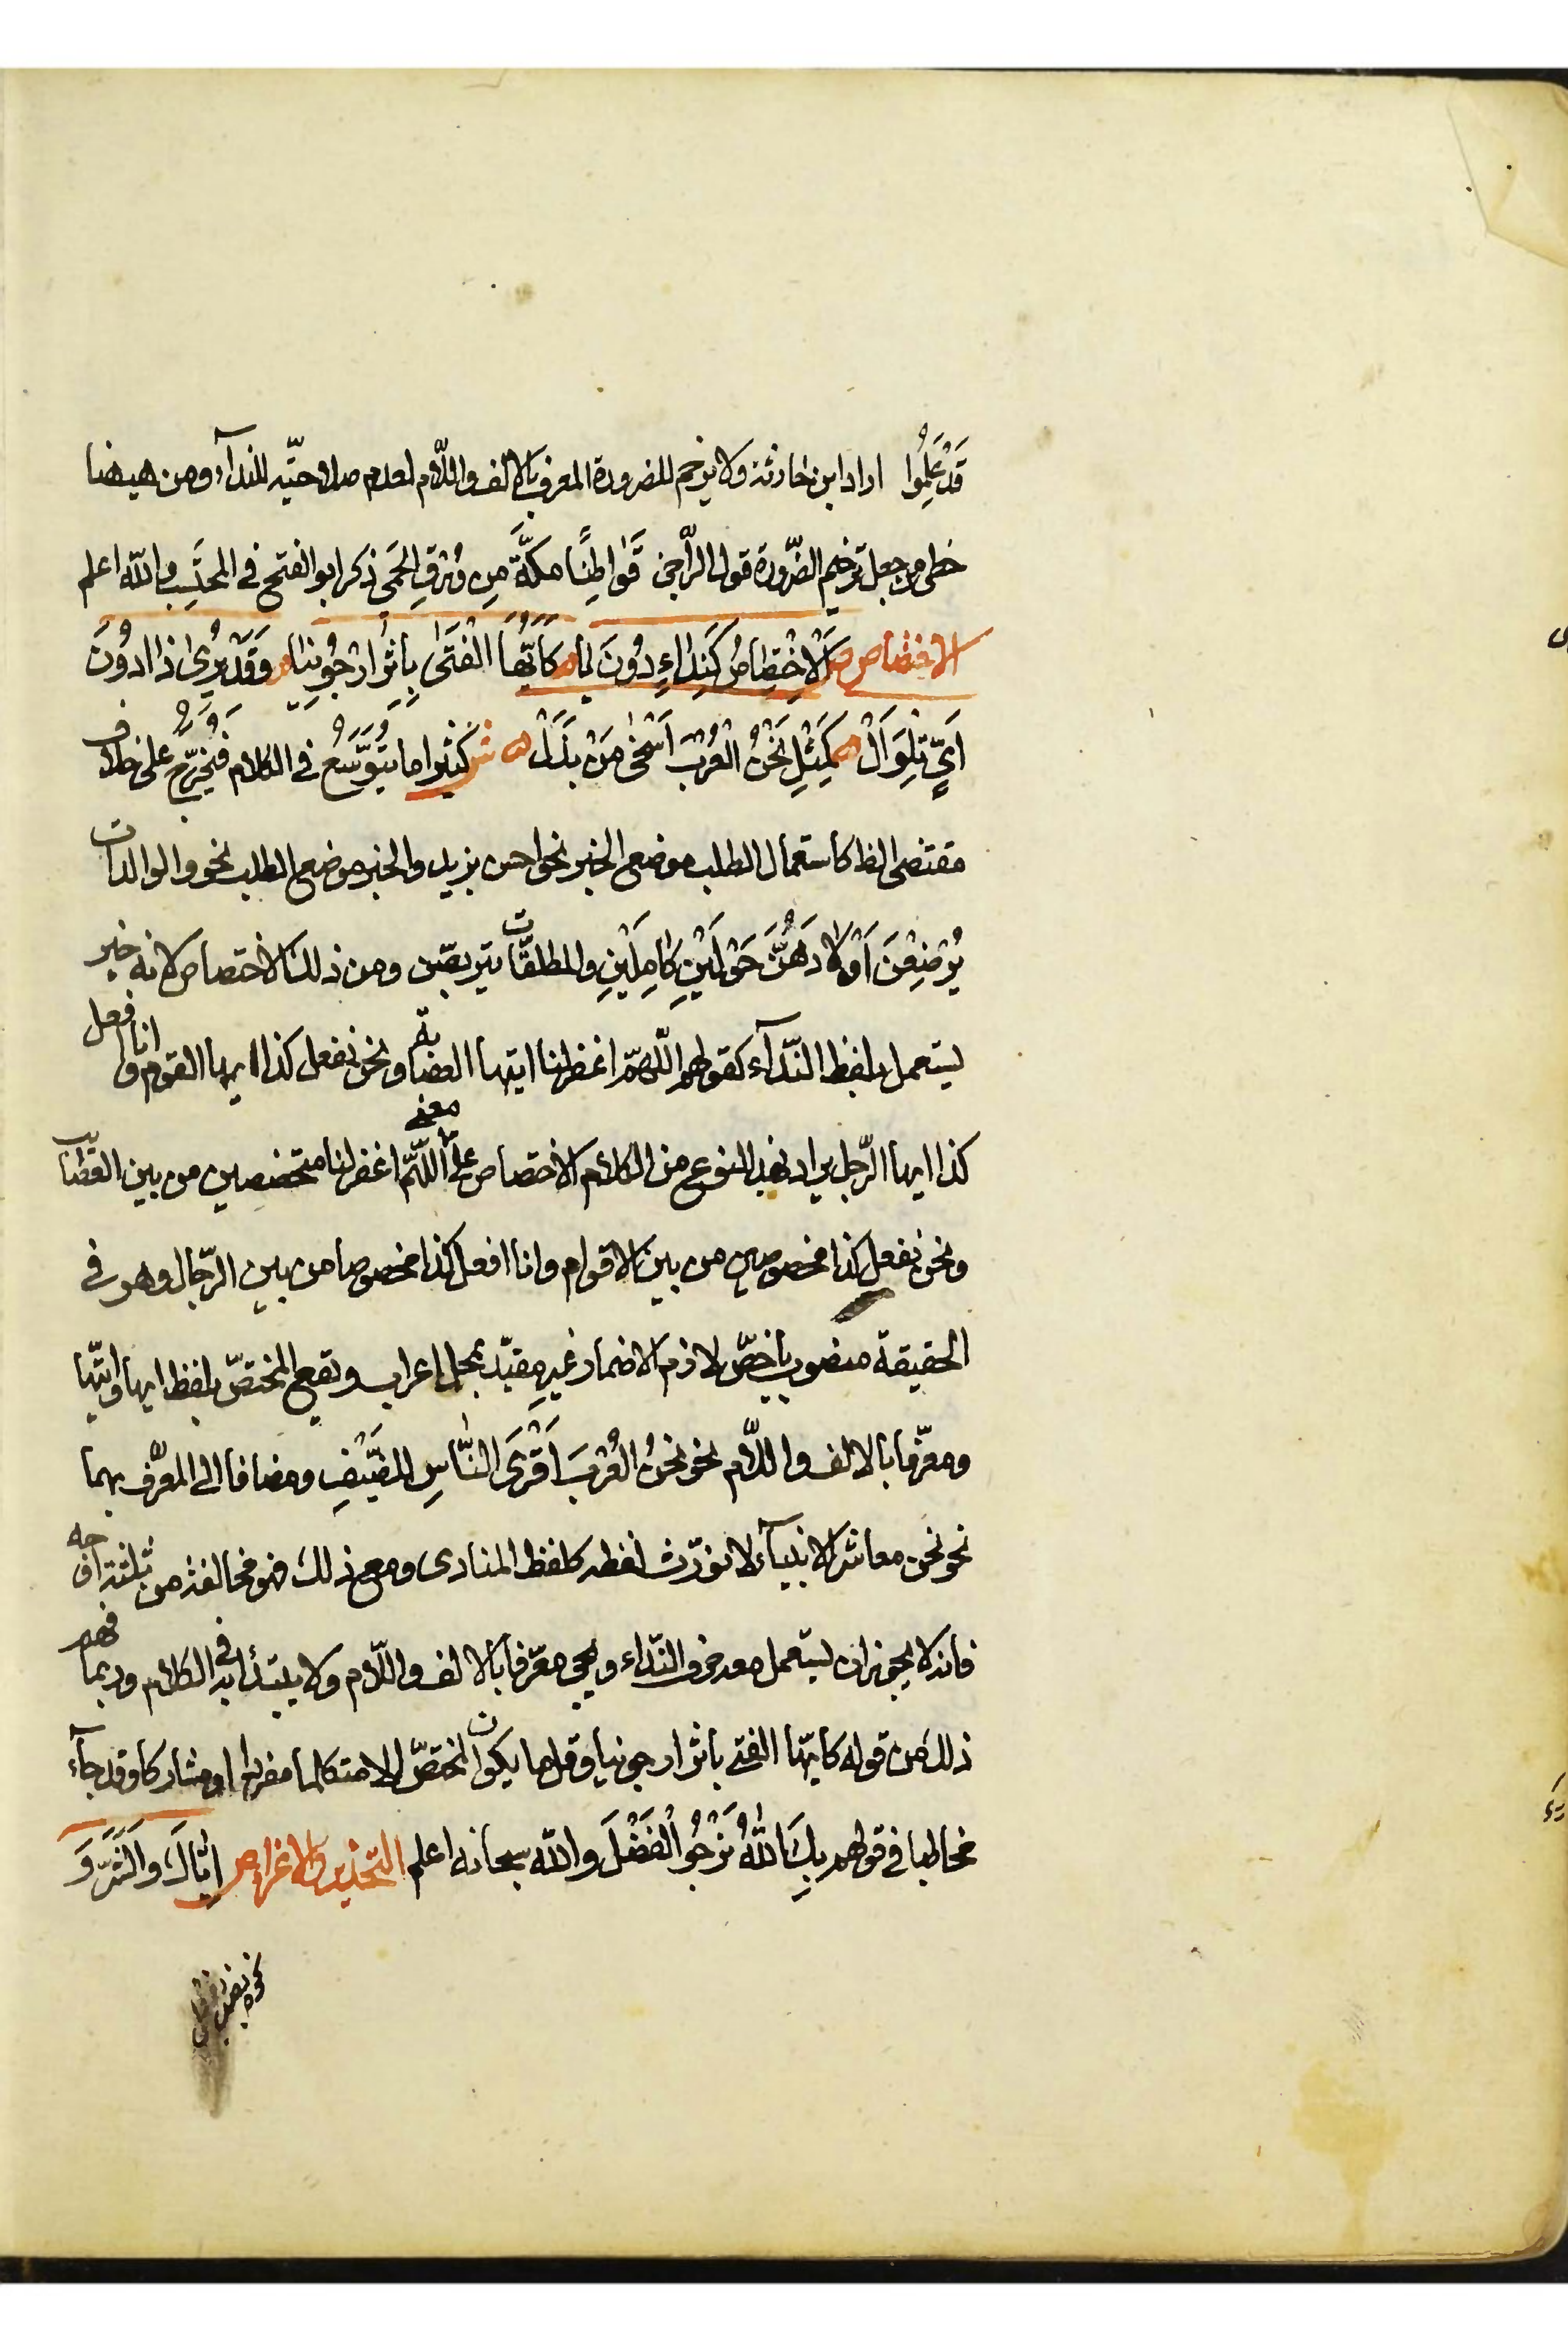 قَدْ عَلِمُوا اراد ابن حارثة ولا يرخم للضرورة المعرف بالالف واللّام لعدم صلاحيّته للندآء ومن هيهنا
خطى من جعل ترخيم الضّرورة قول الرّاجز قَوٰاطِنًا مكّةَ مِن وُرْقِ الحَمَى ذكر ابو الفتح فى المحتَسِب والله اعلم
الاختصاص ص اَلْاِخْتِصٰاصُ كَنِدٰاءٍ دُونَ يٰا ه كَاَيُّهٰا الْفَتَى بِاِثْرِ ارْجُونِيٰا ه وَقَدْ يُرىٰ ذٰا دُونَ
اَيٍّ تِلْوَ اَلْ ه كَمِثْلِ نَحْنُ الْعُرْبَ اَسْخىٰ مَنْ بَذَلْ ه ش كثيرا ما يُتَوَسَّعُ فى الكلام فَيُخَرَّجُ على خلاف
مقتضى الظ كاستعمال الطلب موضع الخبر نحو احسن بزيد والخبر موضع الطلب نحو والوالدات
يُرْضِعْنَ اَوْلٰادَهُنَّ حَوْلَيْنِ كٰامِلَيْنِ والمطلقّات يتربصّن ومن ذلك الاختصاص لانه خبر
يستعمل بلفظ النّدآء كقولهم اللّهمّ اغفر لنا ايتها العصابة ونحن نفعل كذا ايها القوم وانا افعل
كذا ايها الرّجل يراد بهذ النوع من الكلام الاختصاص على معنى اللّهمّ اغفر لنا متخصصين من بين العصايب
ونحن نفعل كذا مخصوصين من بين الاقوام وانا افعل كذا مخصوصا من بين الرّجال وهو فى
الحقيقة منصوب باخصّ لازم الاضمار غير مقيّد بمحل اعراب ويقع المختصّ بلفظ ايها وايّتها
ومعرّفا بالالف واللّام نحو نحنُ الْعُرْبَ اَقْرَى النّٰاسِ للضَّيْفِ ومضافا الى المعرّف بهما
نحو نحن معاشر الانبيآء لا نورّث لفظه كلفظ المنادى ومع ذلك فهو مخالفة من ثلثة اوجه
فانه لا يجوز ان يستعمل معه حرف النّداء ويجى معرّفا بالالف واللّام ولا يبتدأ به فى الكلام وربما فهم
ذلك من قوله كايّها الفتى باثر ارجونيا وقل ما يكون المختصّ الا متكلما مفردا او مشاركا وقد جآء
مخاطبا فى قولهم بِكَ اللّٰهُ نَرْجُو الْفَضْلَ والله سبحانه اعلم التحذير والاغراء ص اِيّٰاكَ والشَّرَّ وَ
نحوه نصب